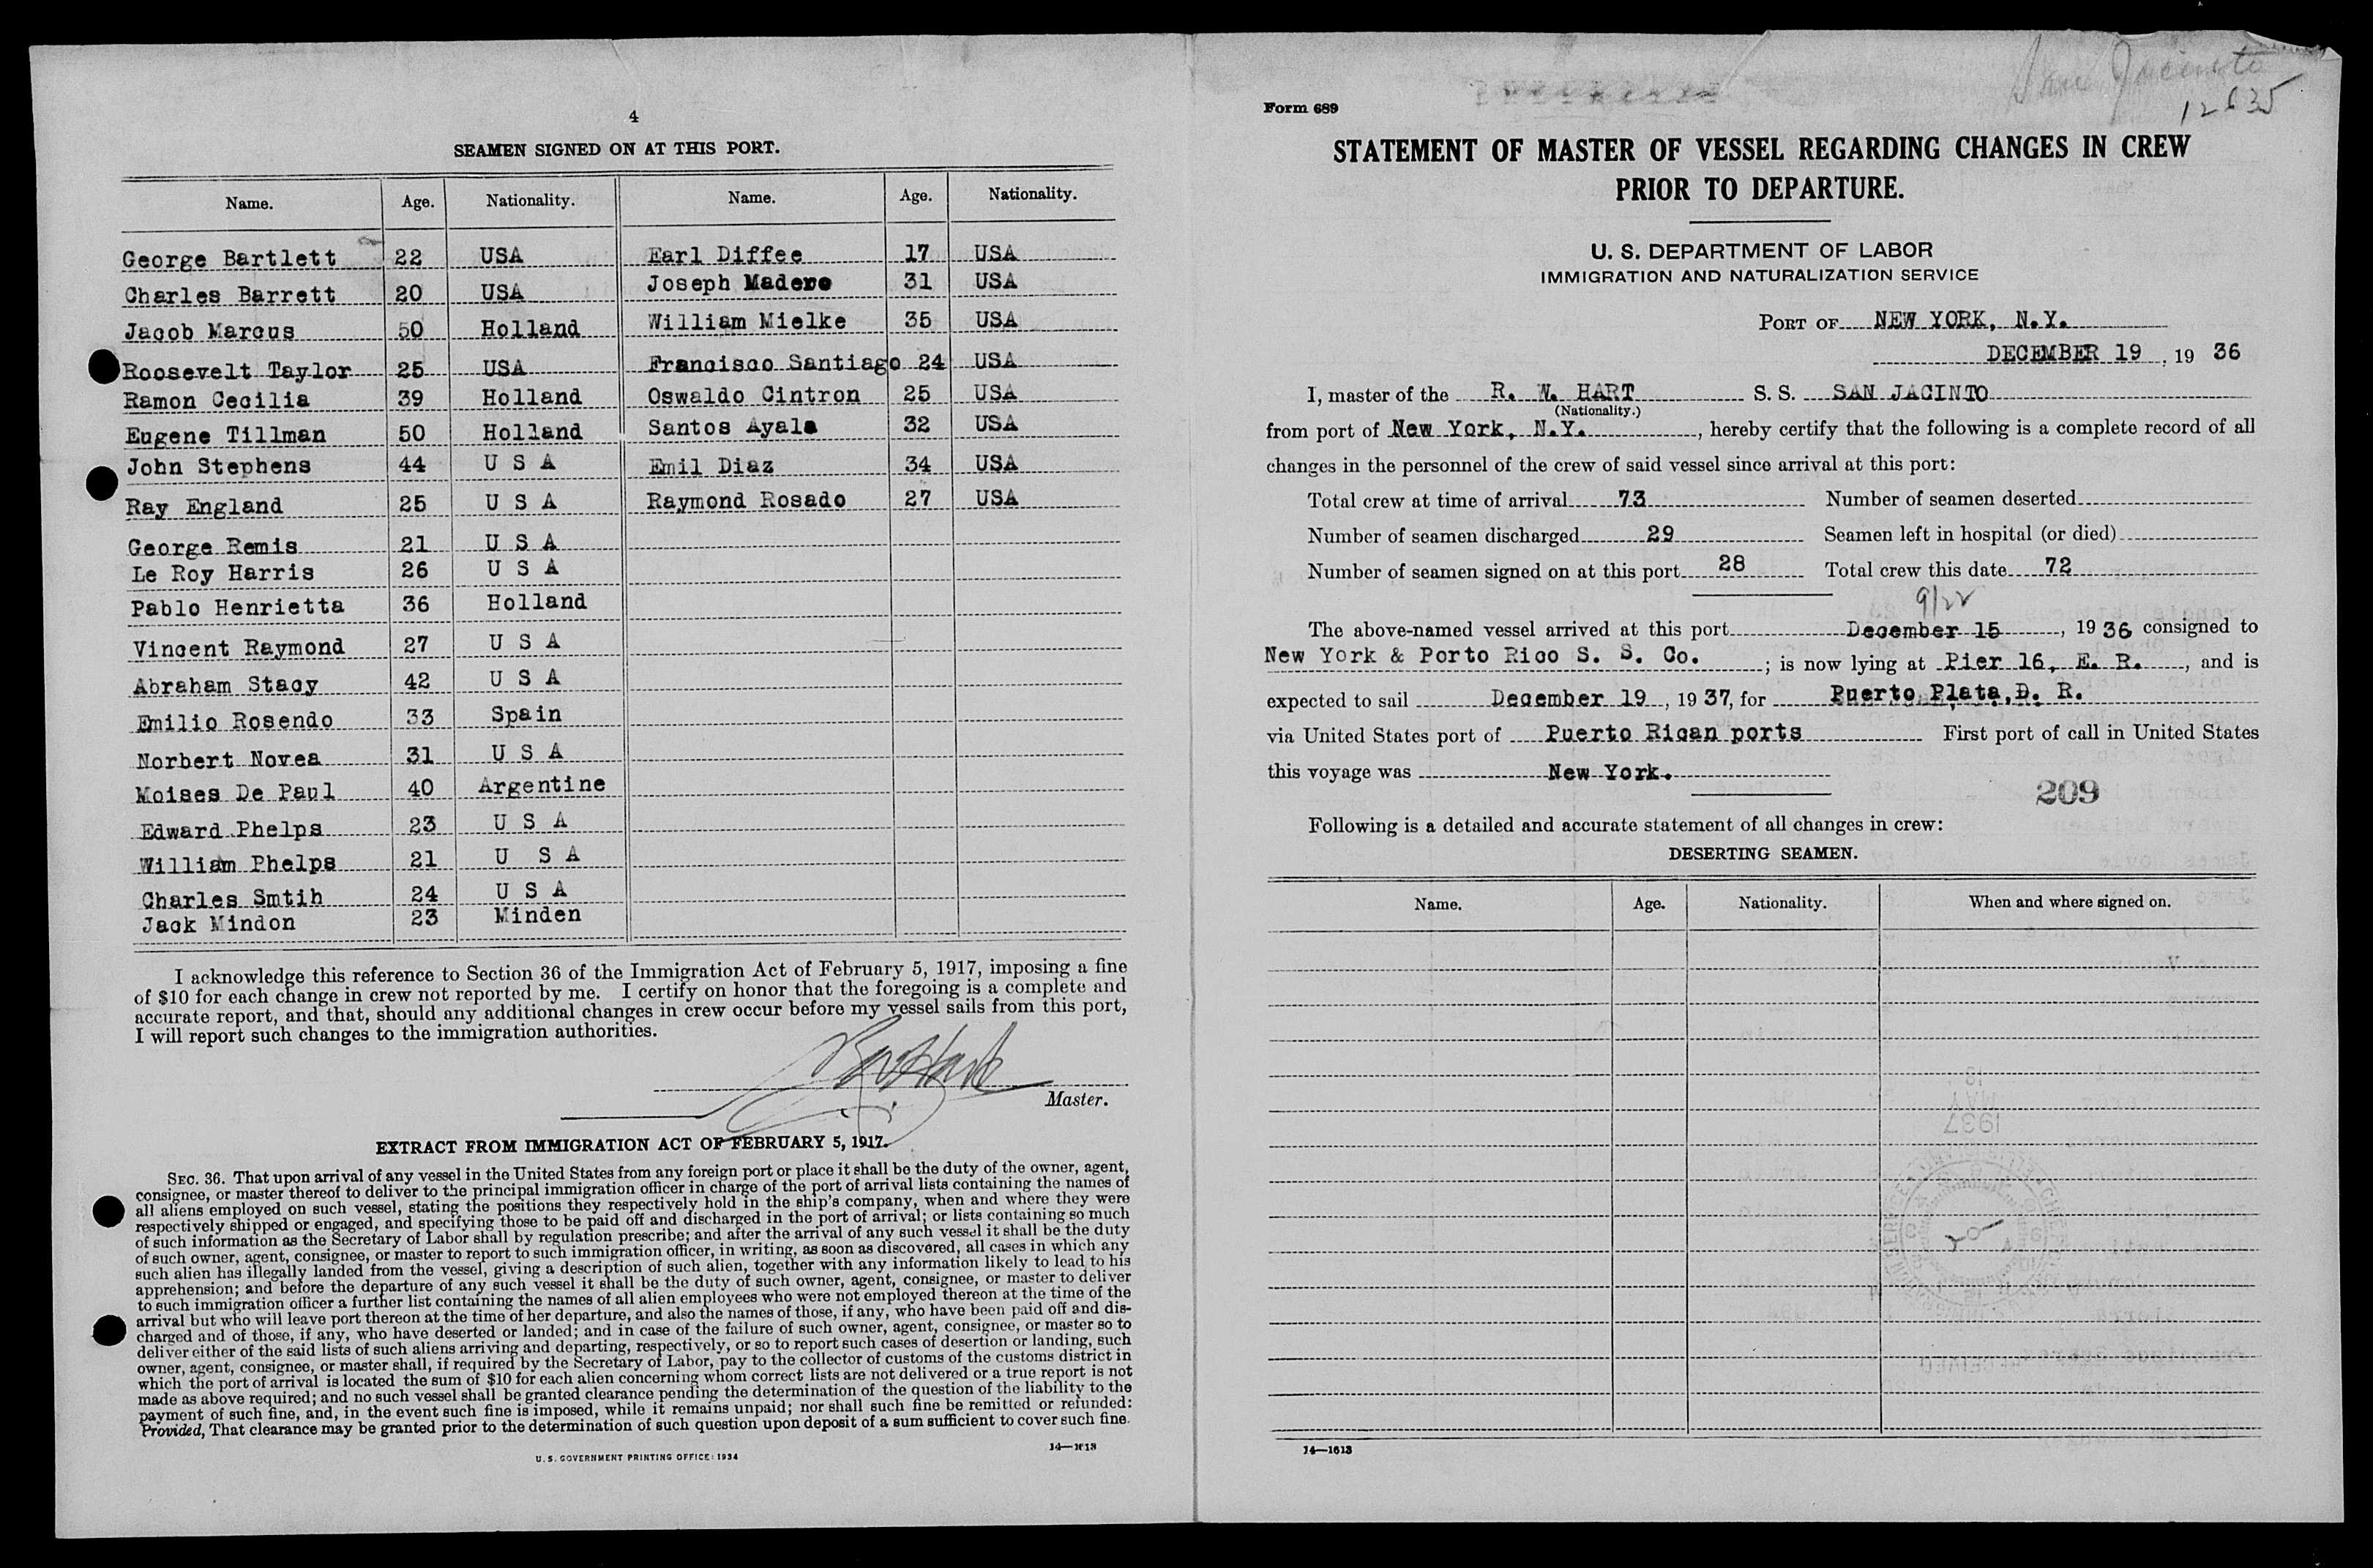 4
SEAMEN SIGNED ON AT THIS PORT.
Name. Age. Nationality. Name. Age. Nationality.
George Bartlett 22 USA Earl Diffee 17 USA
Charles Barrett 20 USA Joseph Madero 31 USA
Jacob Marcus 50 Holland William Mielke 35 USA
Roosevelt Taylor 25 USA Francisco Santiago 24 USA
Ramon Cecilia 39 Holland Oswaldo Cintron 25 USA
Eugene Tillman 50 Holland Santos Ayala 32 USA
John Stephens 44 U S A Emil Diaz 34 USA
Ray England 25 U S A Raymond Rosado 27 USA
George Remis 21 U S A
Le Roy Harris 26 U S A
Pablo Henrietta 36 Holland
Vincent Raymond 27 U S A
Abraham Stacy 42 U S A
Emilio Rosendo 33 Spain
Norbert Novea 31 U S A
Moises De Paul 40 Argentine
Edward Phelps 23 U S A
William Phelps 21 U S A
Charles Smtih 24 U S A
Jack Mindon 23 Minden
I acknowledge this reference to Section 36 of the Immigration Act of February 5, 1917, imposing a fine
of $10 for each change in crew not reported by me. I certify on honor that the foregoing is a complete and
accurate report, and that, should any additional changes in crew occur before my vessel sails from this port,
I will report such changes to the immigration authorities.
RWHart
Master.
EXTRACT FROM IMMIGRATION ACT OF FEBRUARY 5, 1917.
SEC. 36. That upon arrival of any vessel in the United States from any foreign port or place it shall be the duty of the owner, agent,
consignee, or master thereof to deliver to the principal immigration officer in charge of the port of arrival lists containing the names of
all aliens employed on such vessel, stating the positions they respectively hold in the ship's company, when and where they were
respectively shipped or engaged, and specifying those to be paid off and discharged in the port of arrival; or lists containing so much
of such information as the Secretary of Labor shall by regulation prescribe; and after the arrival of any such vessel it shall be the duty
of such owner, agent, consignee, or master to report to such immigration officer, in writing, as soon as discovered, all cases in which any
such alien has illegally landed from the vessel, giving a description of such alien, together with any information likely to lead to his
apprehension; and before the departure of any such vessel it shall be the duty of such owner, agent, consignee, or master to deliver
to such immigration officer a further list containing the names of all alien employees who were not employed thereon at the time of the
arrival but who will leave port thereon at the time of her departure, and also the names of those, if any, who have been paid off and dis-
charged and of those, if any, who have deserted or landed; and in case of the failure of such owner, agent, consignee, or master so to
deliver either of the said lists of such aliens arriving and departing, respectively, or so to report such cases of desertion or landing, such
owner, agent, consignee, or master shall, if required by the Secretary of Labor, pay to the collector of customs of the customs district in
which the port of arrival is located the sum of $10 for each alien concerning whom correct lists are not delivered or a true report is not
made as above required; and no such vessel shall be granted clearance pending the determination of the question of the liability to the
payment of such fine, and, in the event such fine is imposed, while it remains unpaid; nor shall such fine be remitted or refunded:
Provided, That clearance may be granted prior to the determination of such question upon deposit of a sum sufficient to cover such fine.
14—1613
U. S. GOVERNMENT PRINTING OFFICE: 1934
San Jacinto
12635
Form 689
STATEMENT OF MASTER OF VESSEL REGARDING CHANGES IN CREW
PRIOR TO DEPARTURE.
U. S. DEPARTMENT OF LABOR
IMMIGRATION AND NATURALIZATION SERVICE
PORT OF NEW YORK, N.Y.
DECEMBER 19, 19 36
I, master of the R. W. HART S. S. SAN JACINTO
(Nationality.)
from port of New York, N.Y., hereby certify that the following is a complete record of all
changes in the personnel of the crew of said vessel since arrival at this port:
Total crew at time of arrival 73 Number of seamen deserted
Number of seamen discharged 29 Seamen left in hospital (or died)
Number of seamen signed on at this port 28 Total crew this date 72
9/22
The above-named vessel arrived at this port December 15, 19 36 consigned to
New York & Porto Rico S. S. Co.; is now lying at Pier 16, E. R., and is
expected to sail December 19, 19 37, for Puerto Plata, D. R.
via United States port of Puerto Rican ports First port of call in United States
this voyage was New York.
209
Following is a detailed and accurate statement of all changes in crew:
DESERTING SEAMEN.
Name. Age. Nationality. When and where signed on.
14—1613